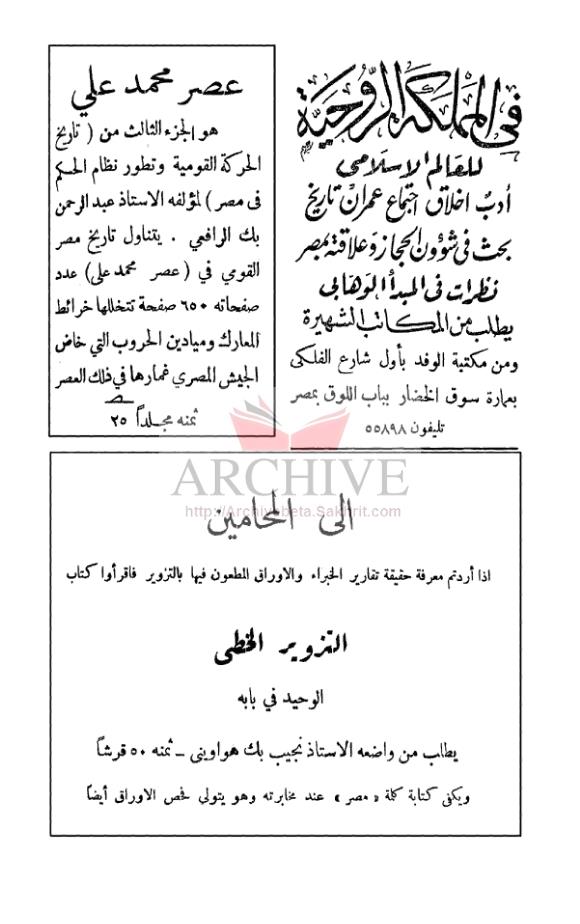 في المملكة الروحية
للعالم الاسلامي
أدب اخلاق اجتماع عمران تاريخ
بحث فى شؤون الحجاز وعلاقته بمصر
نظرات فى المبدأ الوهابى
يطلب من المكاتب الشهيرة
ومن مكتبة الوفد بأول شارع الفلكى
بعمارة سوق الخضار بباب اللوق بمصر
تليفون ٥٥٨٩٨
عصر محمد علي
هو الجزء الثالث من ( تاريخ
الحركة القومية وتطور نظام الحكم
فى مصر ) لمؤلفه الاستاذ عبد الرحمن
بك الرافعي . يتناول تاريخ مصر
القومي في ( عصر محمد على ) عدد
صفحاته ٦٥٠ صفحة تتخللها خرائط
المعارك وميادين الحروب التي خاض
الجيش المصري غمارها في ذلك العصر
ثمنه مجلداً ٢٥
ARCHIVE
http://Archivebeta.Sakhrit.com
الى المحامين
اذا أردتم معرفة حقيقة تقارير الخبراء والاوراق المطعون فيها بالتزوير فاقرأوا كتاب
التزوير الخطى
الوحيد في بابه
يطلب من واضعه الاستاذ نجيب بك هواوينى – ثمنه ٥٠ قرشاً
ويكفى كتابة كلمة « مصر » عند مخابرته وهو يتولى فحص الاوراق أيضاً